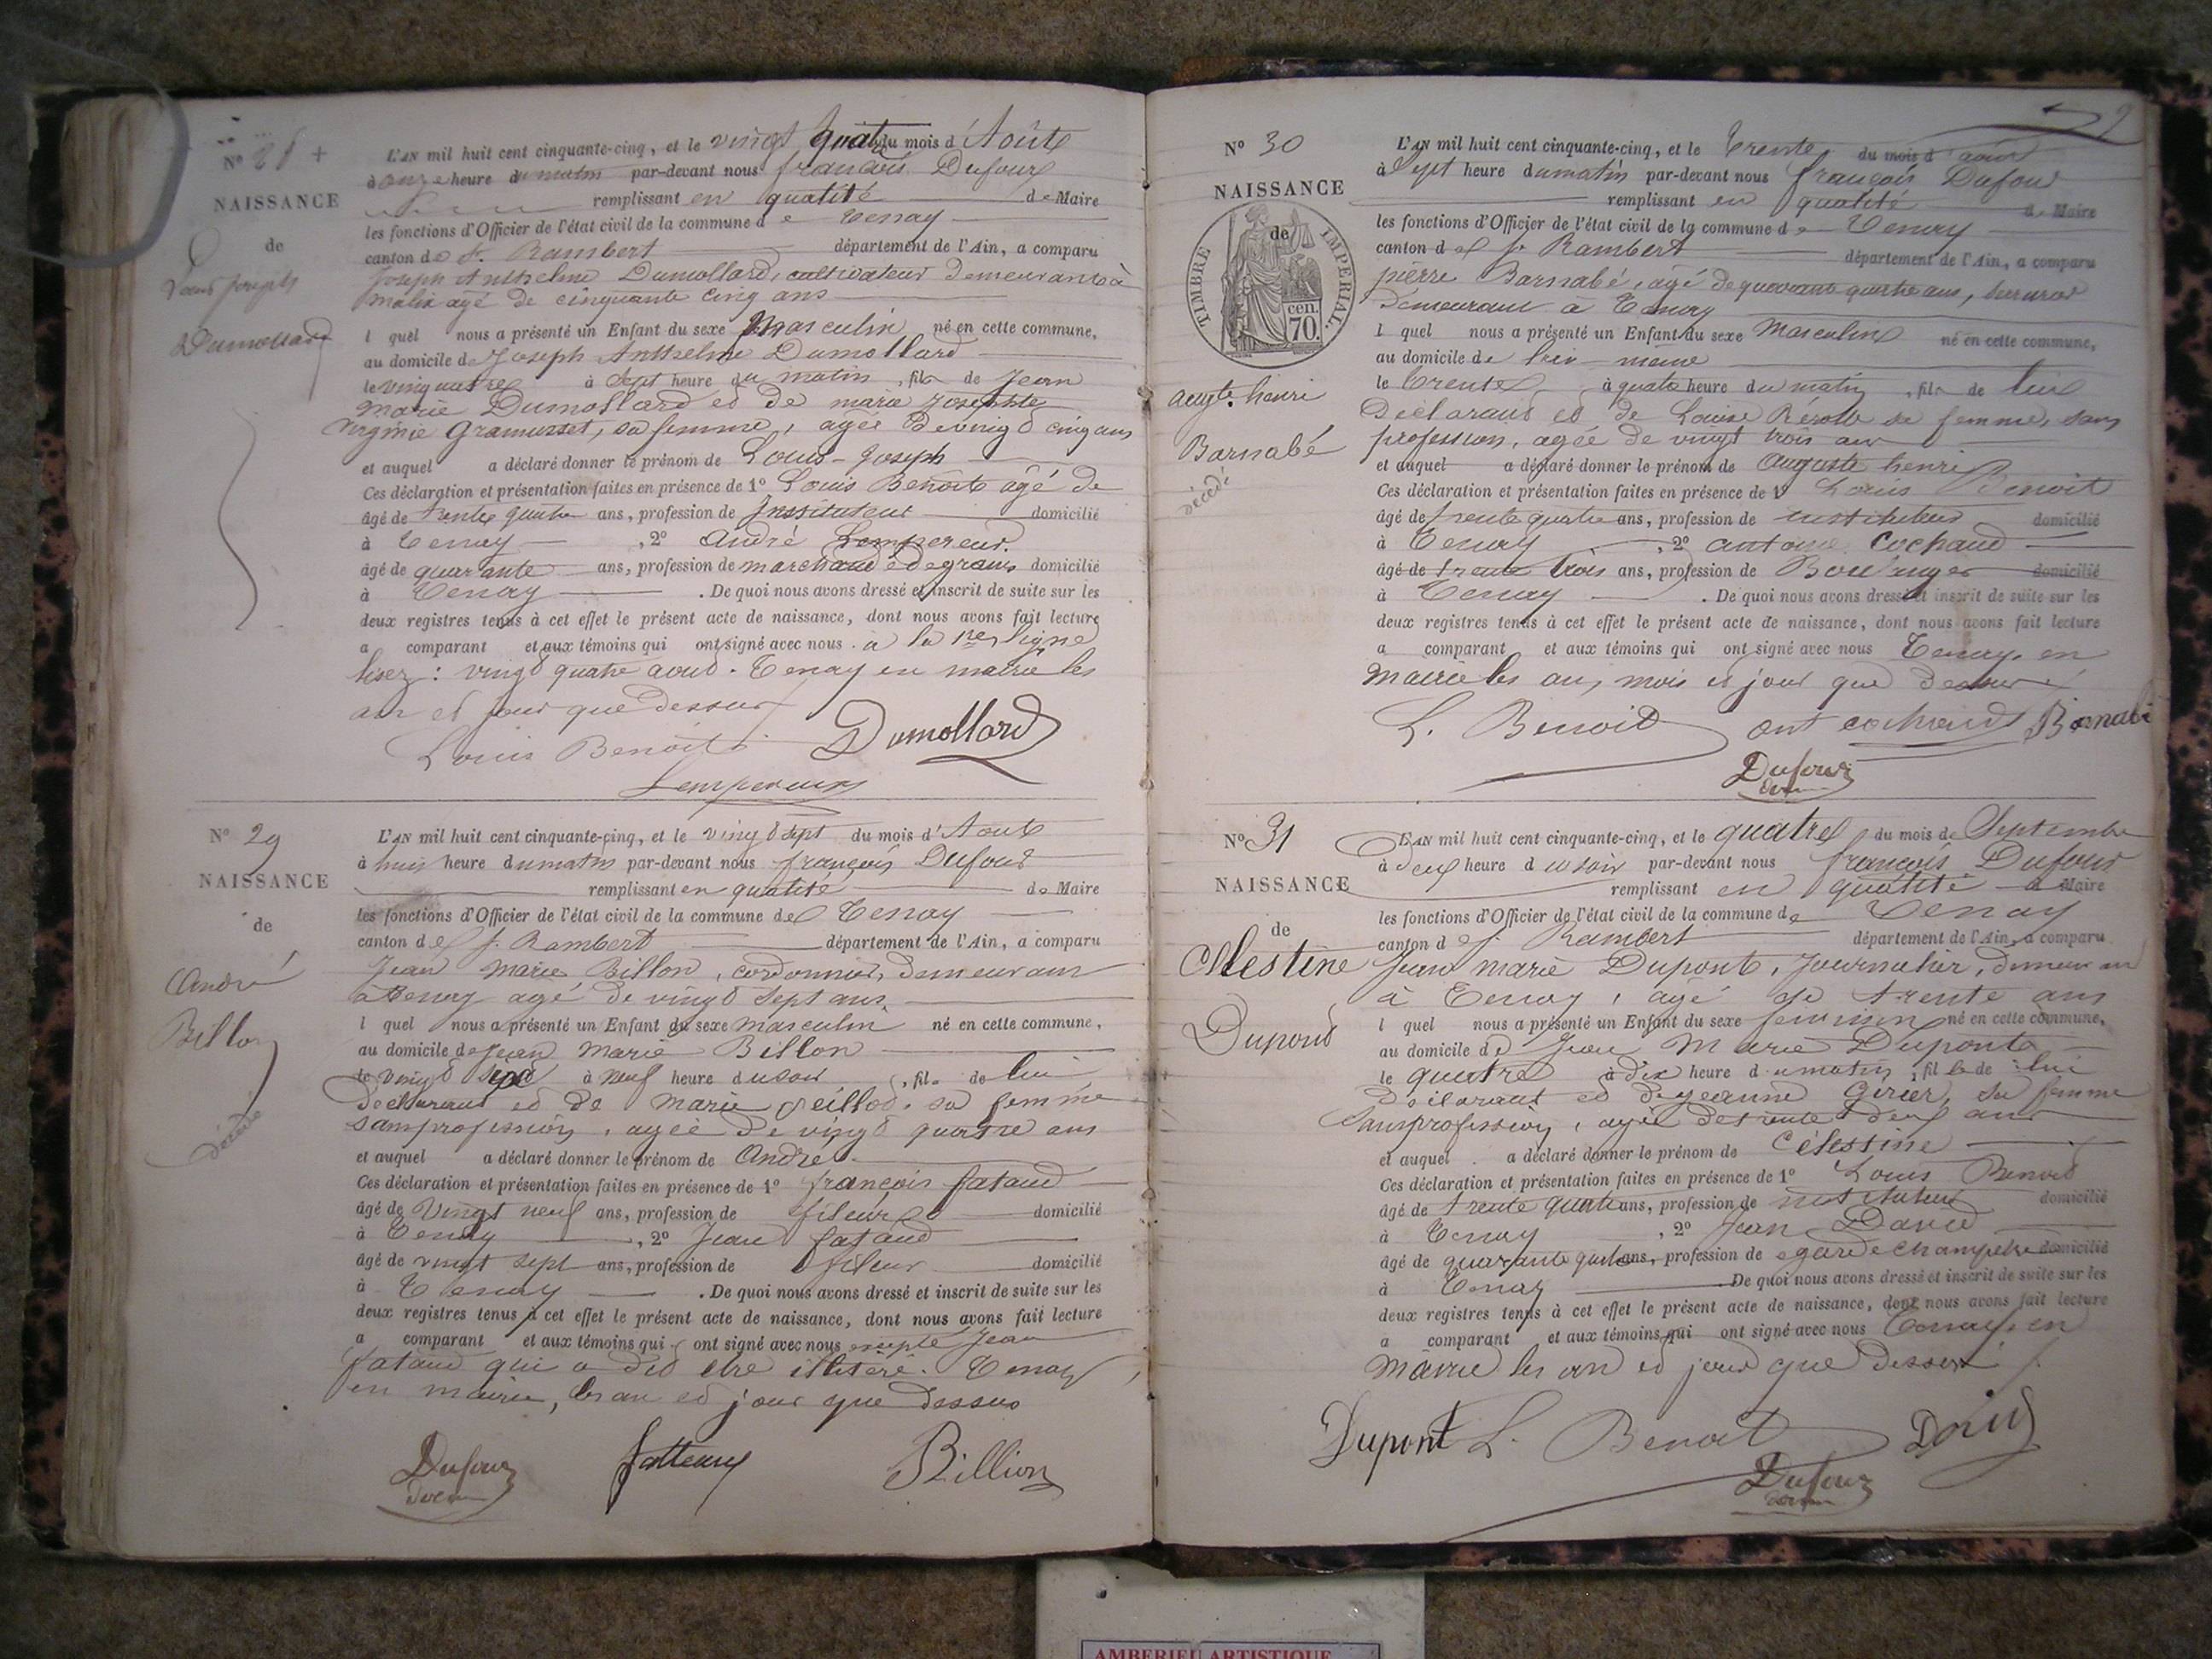 N° 28 +
NAISSANCE
de
Louis Joseph
Dumollard
L'AN mil huit cent cinquante-cinq, et le vingt quatre du mois d'Août
à onze heure du matin par-devant nous françois Dufour
remplissant en qualité de Maire
les fonctions d'Officier de l'état civil de la commune de Tenay
canton de St. Rambert département de l'Ain, a comparu
Joseph Anthelme Dumollard, cultivateur demeurant à
agé de cinquante cinq ans
l quel nous a présenté un Enfant du sexe Masculin né en cette commune,
au domicile de Joseph Anthelme Dumollard
le vingquatre à Sept heure du matin, fils de Jean
marie Dumollard et de marie Josephte
virginie Gramusset, sa femme, agée de vingt cinq ans
et auquel a déclaré donner le prénom de Louis-Joseph
Ces déclaration et présentation faites en présence de 1° Louis Benoit âgé de
âgé de trente quatre ans, profession de Instituteur domicilié
à Tenay, 2° André Lempereur.
âgé de quarante ans, profession de marchand de grains domicilié
à Tenay. De quoi nous avons dressé et inscrit de suite sur les
deux registres tenus à cet effet le présent acte de naissance, dont nous avons fait lecture
a comparant et aux témoins qui ont signé avec nous. à la 1re ligne
lisez : vingt quatre aout. Tenay en mairie les
an et jour que dessus
Louis Benoit Dumollard
Lempereur
N° 29
NAISSANCE
de
André
Billon
décédé
L'AN mil huit cent cinquante-cinq, et le vingt sept du mois d'Aout
à huit heure du matin par-devant nous françois Dufour
remplissant en qualité de Maire
les fonctions d'Officier de l'état civil de la commune de Tenay
canton de St. Rambert département de l'Ain, a comparu
Jean Marie Billon, cordonnier, demeurant
à Tenay agé de vingt sept ans
l quel nous a présenté un Enfant du sexe masculin né en cette commune,
au domicile de Jean Marie Billon
le vingt sept à neuf heure du soir, fils de lui
declarant et de Marie sa femme
sans profession, agée de vingt quatre ans
et auquel a déclaré donner le prénom de André
Ces déclaration et présentation faites en présence de 1° françois fataud
âgé de Vingt neuf ans, profession de fileur domicilié
à Tenay, 2° Jean fataud
âgé de vingt sept ans, profession de fileur domicilié
à Tenay. De quoi nous avons dressé et inscrit de suite sur les
deux registres tenus à cet effet le présent acte de naissance, dont nous avons fait lecture
a comparant et aux témoins qui ont signé avec nous excepté Jean
fataud qui a dit etre illitéré. Tenay
en mairie, les an et jour que dessus
Dufour Billion
N° 30
NAISSANCE
de
TIMBRE IMPERIAL.
70. cen.
augte. henri
Barnabé
décédé
L'AN mil huit cent cinquante-cinq, et le trente du mois d'août
à Sept heure du matin par-devant nous françois Dufour
remplissant en qualité de Maire
les fonctions d'Officier de l'état civil de la commune de Tenay
canton de St. Rambert département de l'Ain, a comparu
pierre Barnabé, agé de quarante quatre ans,
demeurant à Tenay
l quel nous a présenté un Enfant du sexe Masculin né en cette commune,
au domicile de lui-meme
le trente à quatre heure du matin, fils de lui
Declarant et de Louise sa femme, sans
profession, agée de vingt trois ans
et auquel a déclaré donner le prénom de Auguste henri
Ces déclaration et présentation faites en présence de 1° Louis Benoit
âgé de trente quatre ans, profession de instituteur domicilié
à Tenay, 2° antoine Cochaud
âgé de trente trois ans, profession de Boulanger domicilié
à Tenay. De quoi nous avons dressé et inscrit de suite sur les
deux registres tenus à cet effet le présent acte de naissance, dont nous avons fait lecture
a comparant et aux témoins qui ont signé avec nous Tenay, en
Mairie les an, mois et jour que dessus
L. Benoit ant cochaud Barnabé
Dufour
N° 31
NAISSANCE
de
Célestine
Dupont
L'AN mil huit cent cinquante-cinq, et le quatre du mois de Septembre
à deux heure du soir par-devant nous françois Dufour
remplissant en qualité de Maire
les fonctions d'Officier de l'état civil de la commune de Tenay
canton de St. Rambert département de l'Ain, a comparu
Jean marie Dupont, Journalier, demeurant
à Tenay, agé de trente ans
l quel nous a présenté un Enfant du sexe feminin né en cette commune,
au domicile de Jean Marie Dupont
le quatre à dix heure du matin, fille de lui
declarant et de jeanne Girier, sa femme
sans profession, agée de trente deux ans
et auquel a déclaré donner le prénom de Célestine
Ces déclaration et présentation faites en présence de 1° Louis Benoit
âgé de trente quatre ans, profession de instituteur domicilié
à Tenay, 2° Jean David
âgé de quarante quatre ans, profession de garde champêtre domicilié
à Tenay. De quoi nous avons dressé et inscrit de suite sur les
deux registres tenus à cet effet le présent acte de naissance, dont nous avons fait lecture
a comparant et aux témoins qui ont signé avec nous Tenay, en
Mairie les an et jour que dessus
Dupont L. Benoit David
Dufour
AMBERIEU ARTISTIQUE